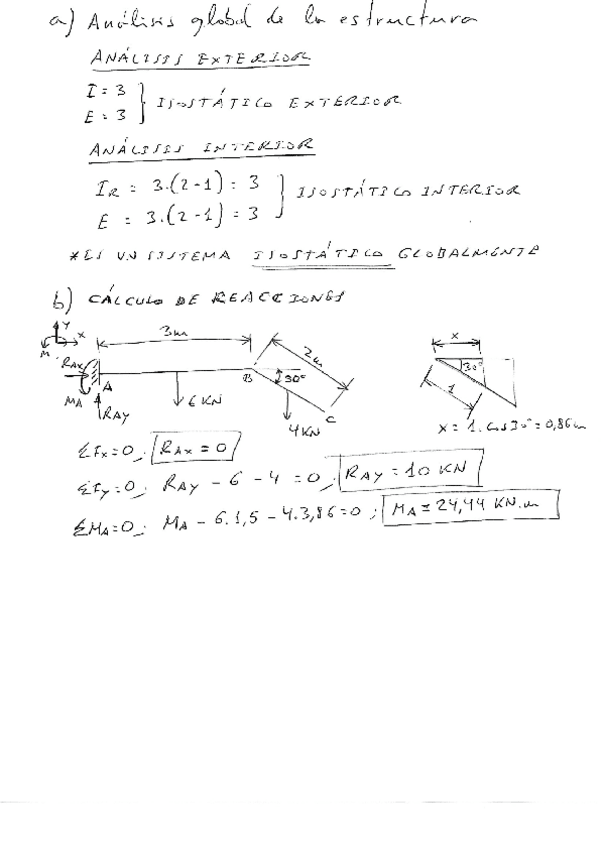 a) Análisis global de la estructura
ANÁLISIS EXTERIOR
I = 3
E = 3 } ISOSTÁTICO EXTERIOR
ANÁLISIS INTERIOR
IR = 3·(2-1) = 3
E = 3·(2-1) = 3 } ISOSTÁTICO INTERIOR
* ES UN SISTEMA ISOSTÁTICO GLOBALMENTE
b) CÁLCULO DE REACCIONES
Y
X
M
3m
2m
x
RAX
A
B
30°
30°
MA
6 KN
C
1
RAY
4KN
x = 1·cos30° = 0,86m
ΣFx=0; RAX = 0
ΣFy=0; RAY - 6 - 4 = 0; RAY = 10 KN
ΣMA=0; MA - 6·1,5 - 4·3,86=0; MA = 24,44 KN·m